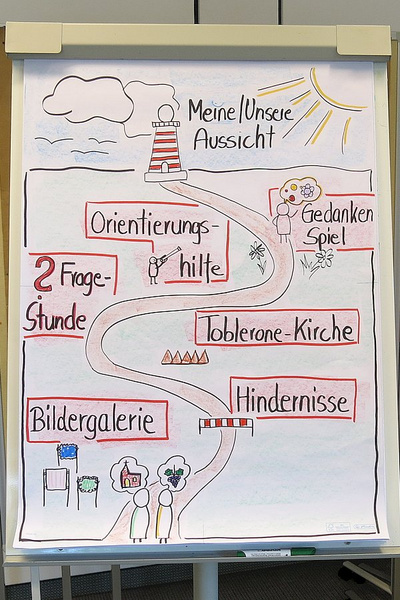 Meine/Unsere
Aussicht
Gedanken
Spiel
Orientierungs-
hilfe
? Frage-
Stunde
Toblerone-Kirche
Hindernisse
Bildergalerie